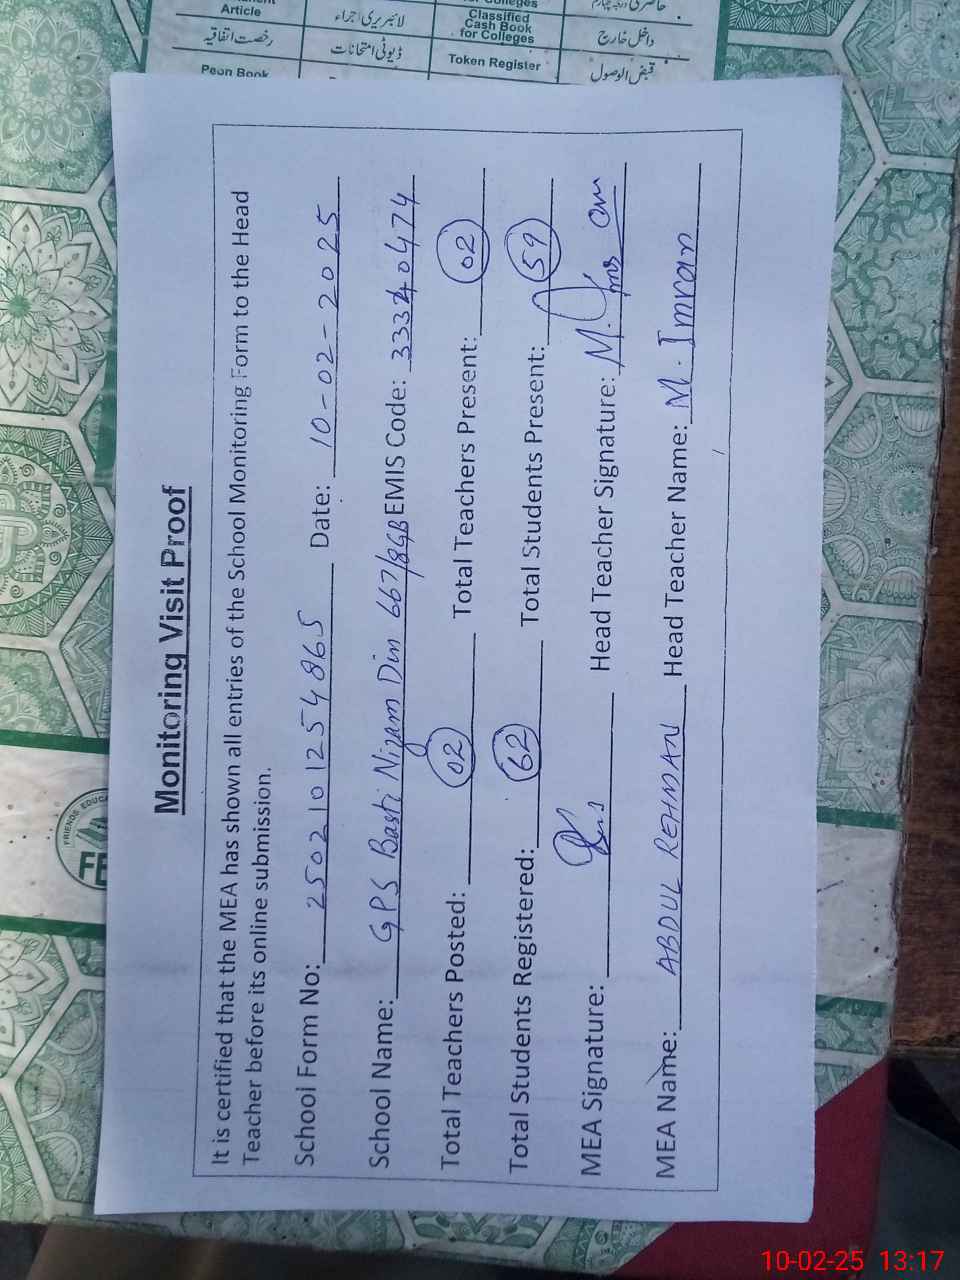 Article
لائبریری اجراء
for Colleges
Classified
Cash Book
for Colleges
داخل خارج
رخصت اتفاقیہ
ڈیوٹی امتحانات
Token Register
قبض الوصول
Peon Book
FRIENDS EDUCA
FE
Monitoring Visit Proof
It is certified that the MEA has shown all entries of the School Monitoring Form to the Head
Teacher before its online submission.
School Form No: 2502101254865 Date: 10-02-2025
School Name: GPS Basti Nizam Din 667/8GB EMIS Code: 33340474
Total Teachers Posted: 02 Total Teachers Present: 02
Total Students Registered: 62 Total Students Present: 59
MEA Signature: Head Teacher Signature:
MEA Name: ABDUL REHMAN Head Teacher Name: M. Imran
10-02-25 13:17